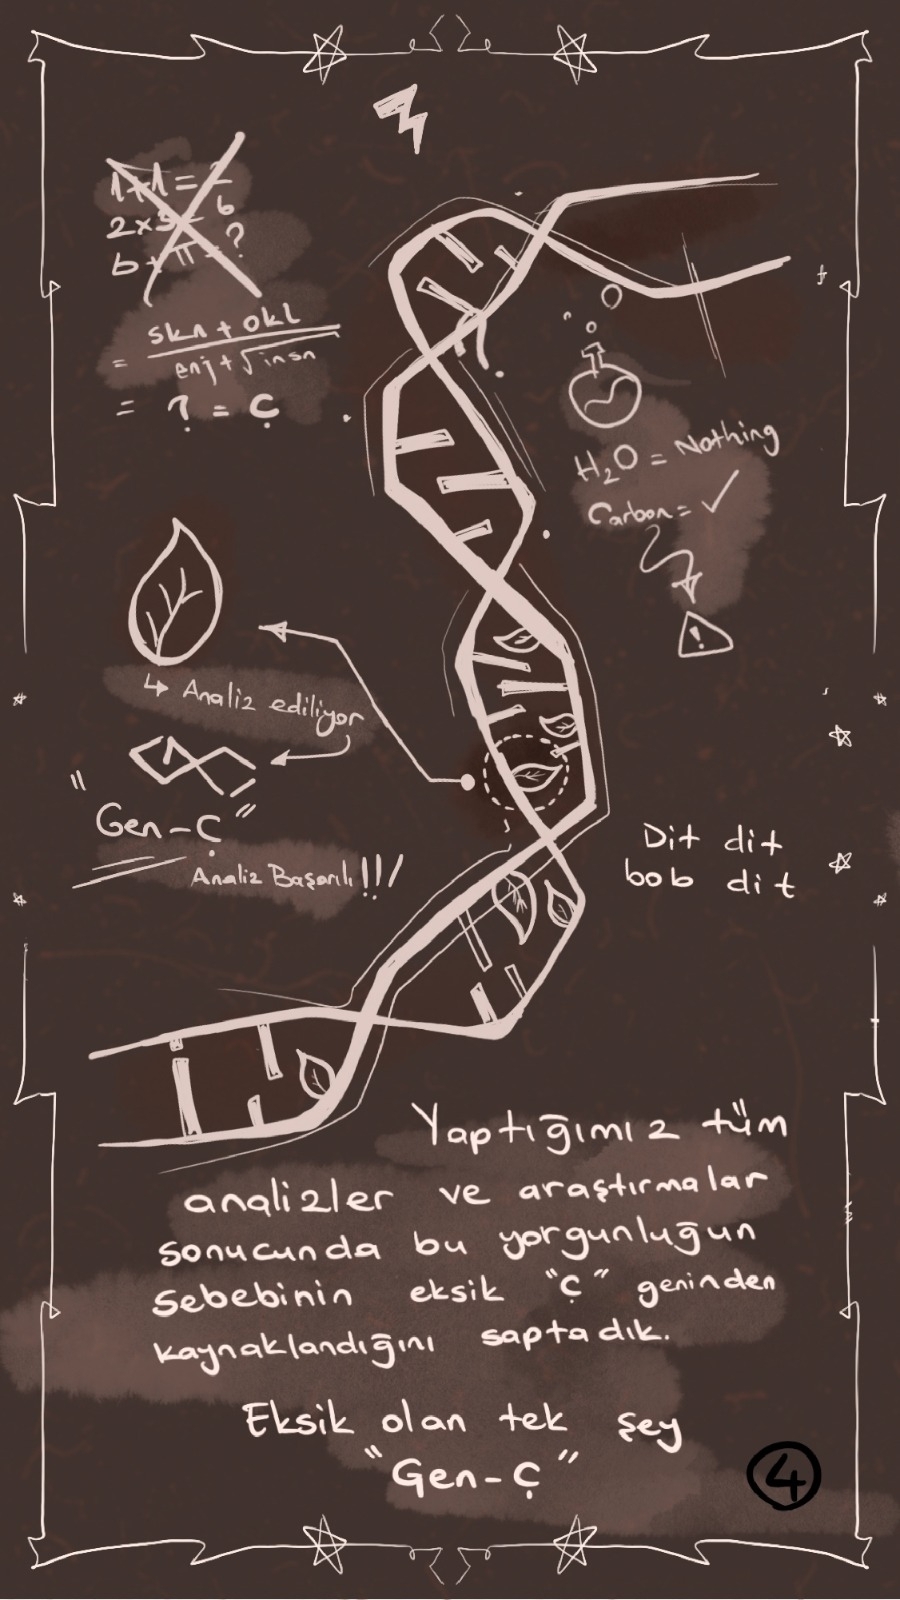 1+1=2
2x3=6
b+π=?
= skn + okl
enj+√insn
= ? = Ç
H₂O = Nothing
Carbon = ✓
!
↳ Analiz ediliyor
"Gen-Ç"
Analiz Başarılı!!!
Dit dit
bob dit
Yaptığımız tüm
analizler ve araştırmalar
sonucunda bu yorgunluğun
sebebinin eksik "Ç" geninden
kaynaklandığını saptadık.
Eksik olan tek şey
"Gen-Ç"
4